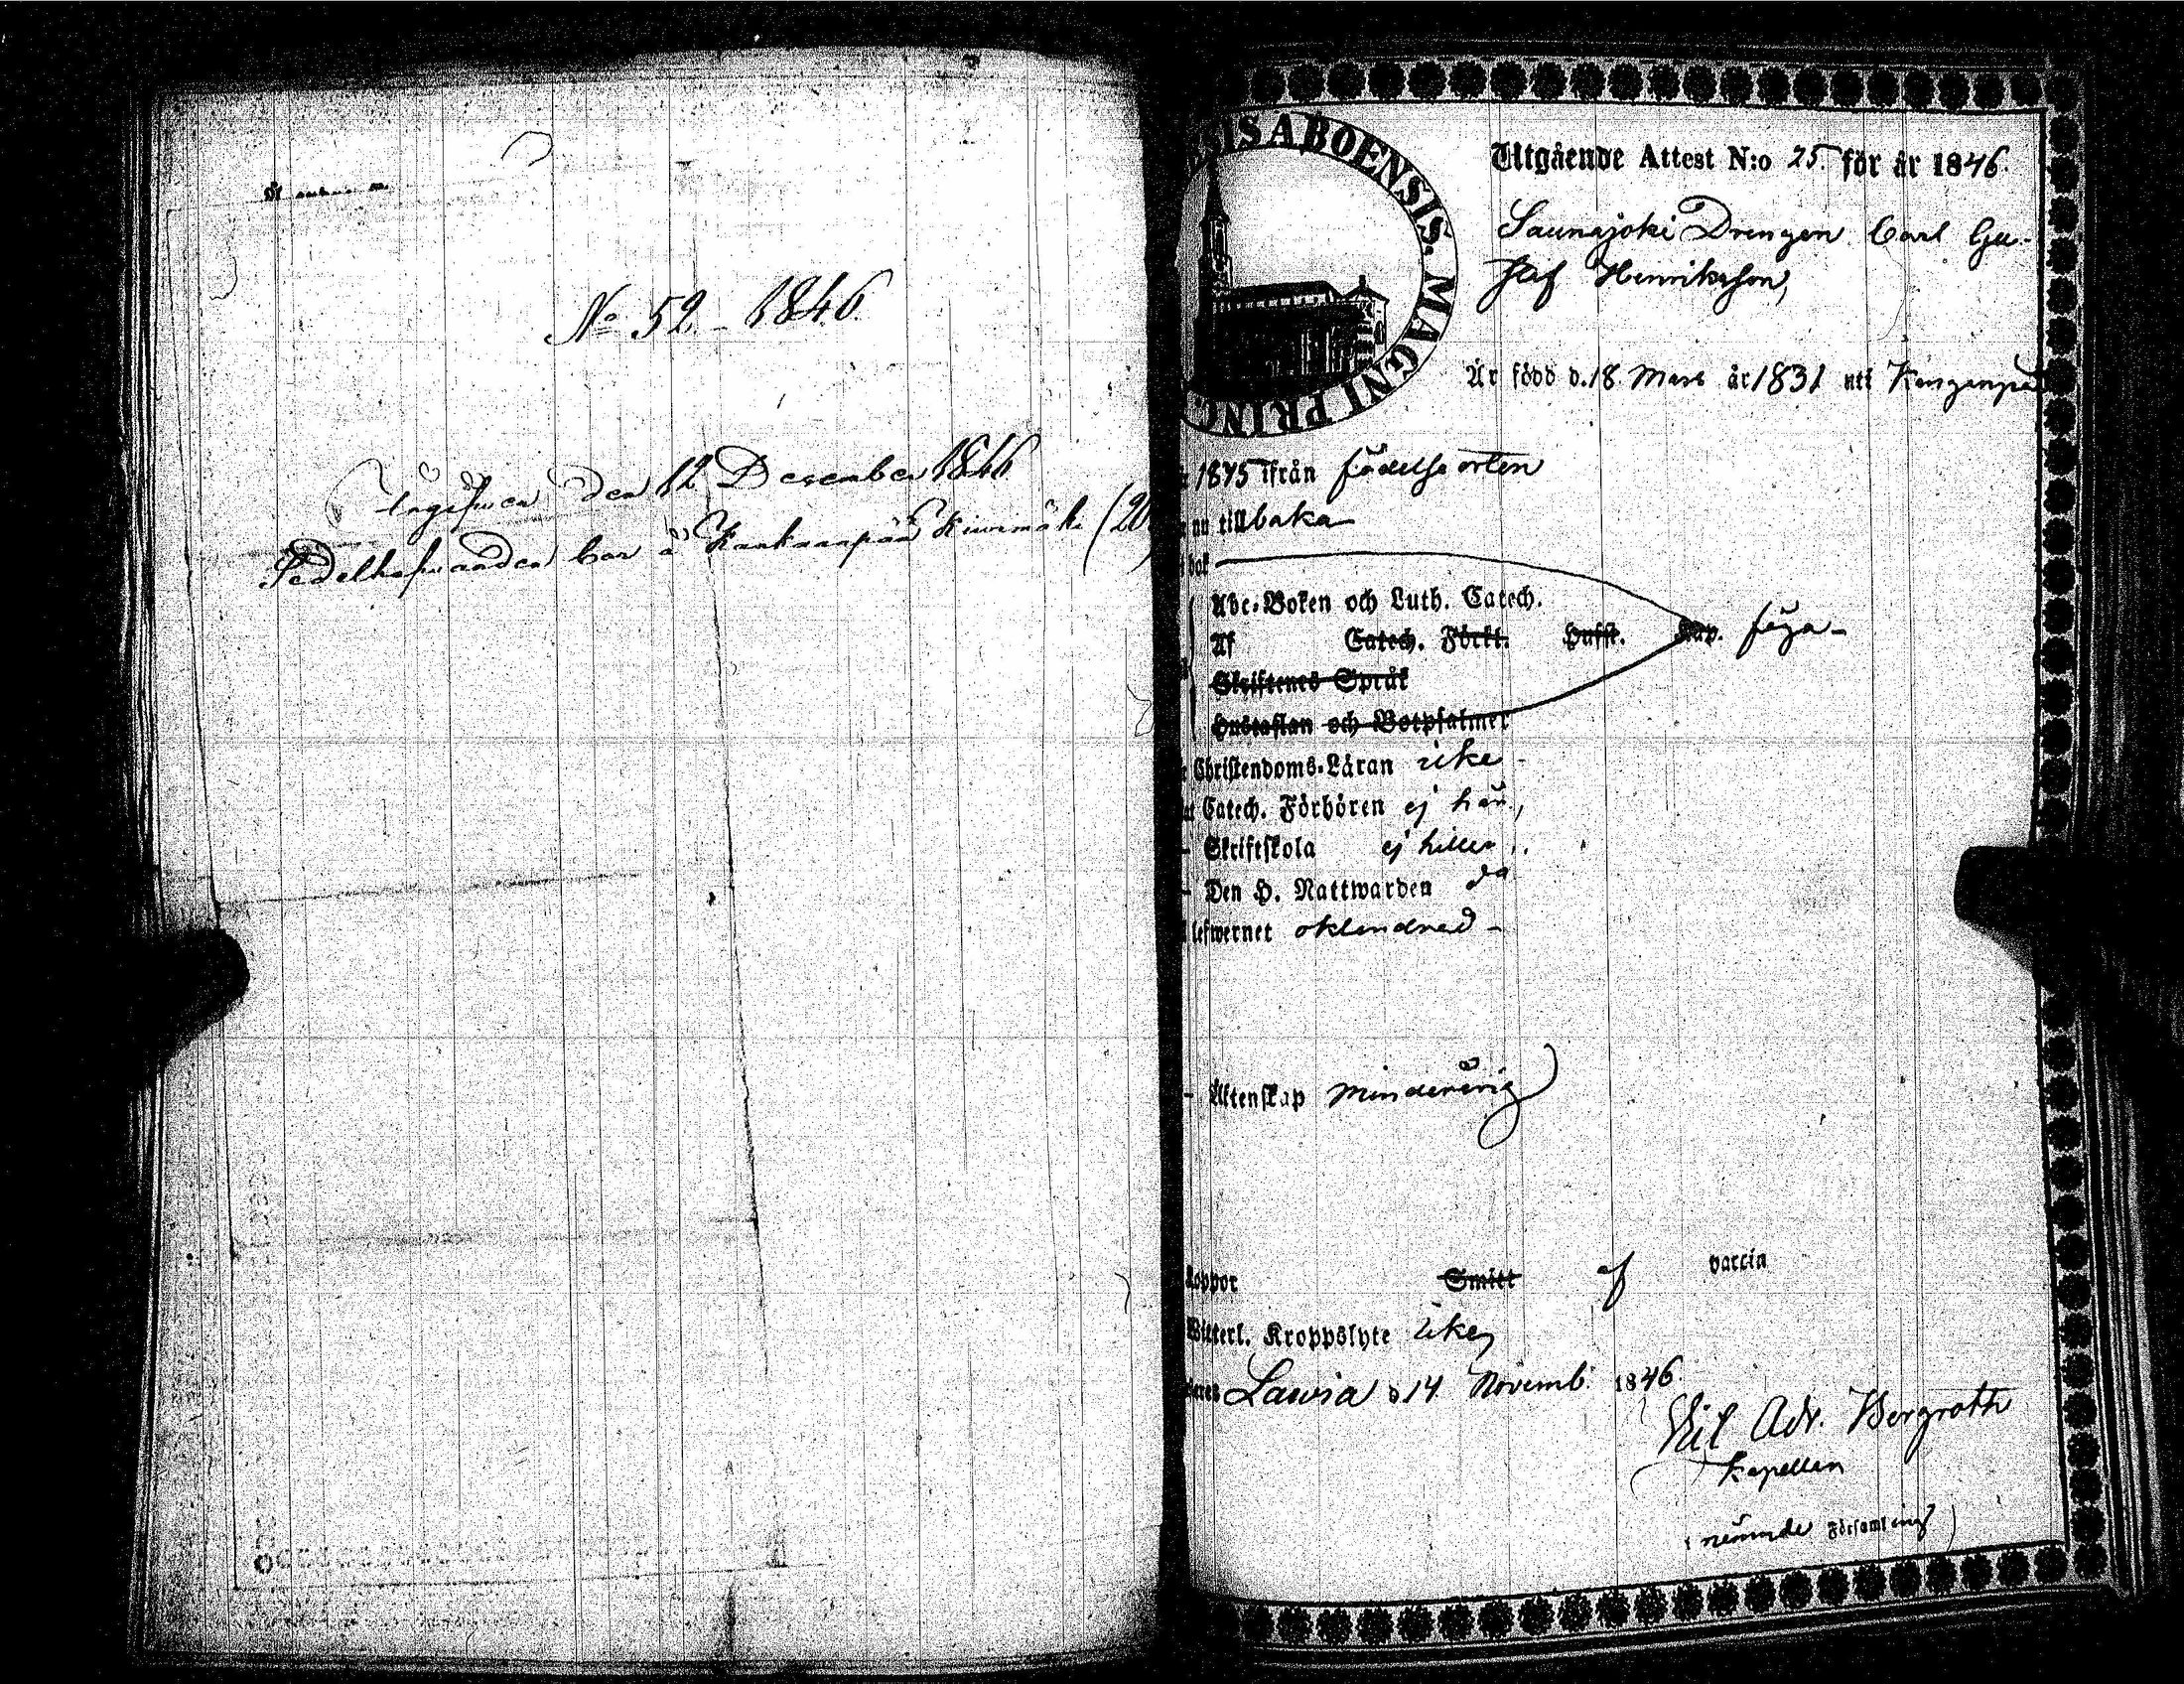 No 52. 1846.
den 12 December 1846
Sedelhafvanden bor å Kankaanpää Kiwimäki (20
SIS ABOENSIS. MAGNI PRINC
Utgående Attest N:o 25. för år 1846.
Saunajoki Drengen Carl Gu-
staf Henriksson,
Är född d. 18 Mars år 1831 uti
1845 ifrån födelse orten
nu tillbaka
bok
Abc-Boken och Luth. Catech.
Af Catech. Förkl. Hufst. Kap. föga -
Skriftenes Språk
Hustaflan och Botpsalmer
Christendoms-Läran icke -
Catech. Förhören ej
- Skriftskola ej heller
- Den H. Nattwarden do
lefwernet oklandrad -
- Äktenskap minderårig
koppor Smitt af vaccin
Witterl. Kroppslyte icke,
Lavia d 14 Novemb. 1846.
Adr. Bergroth
Kapellan
nämnde Församling